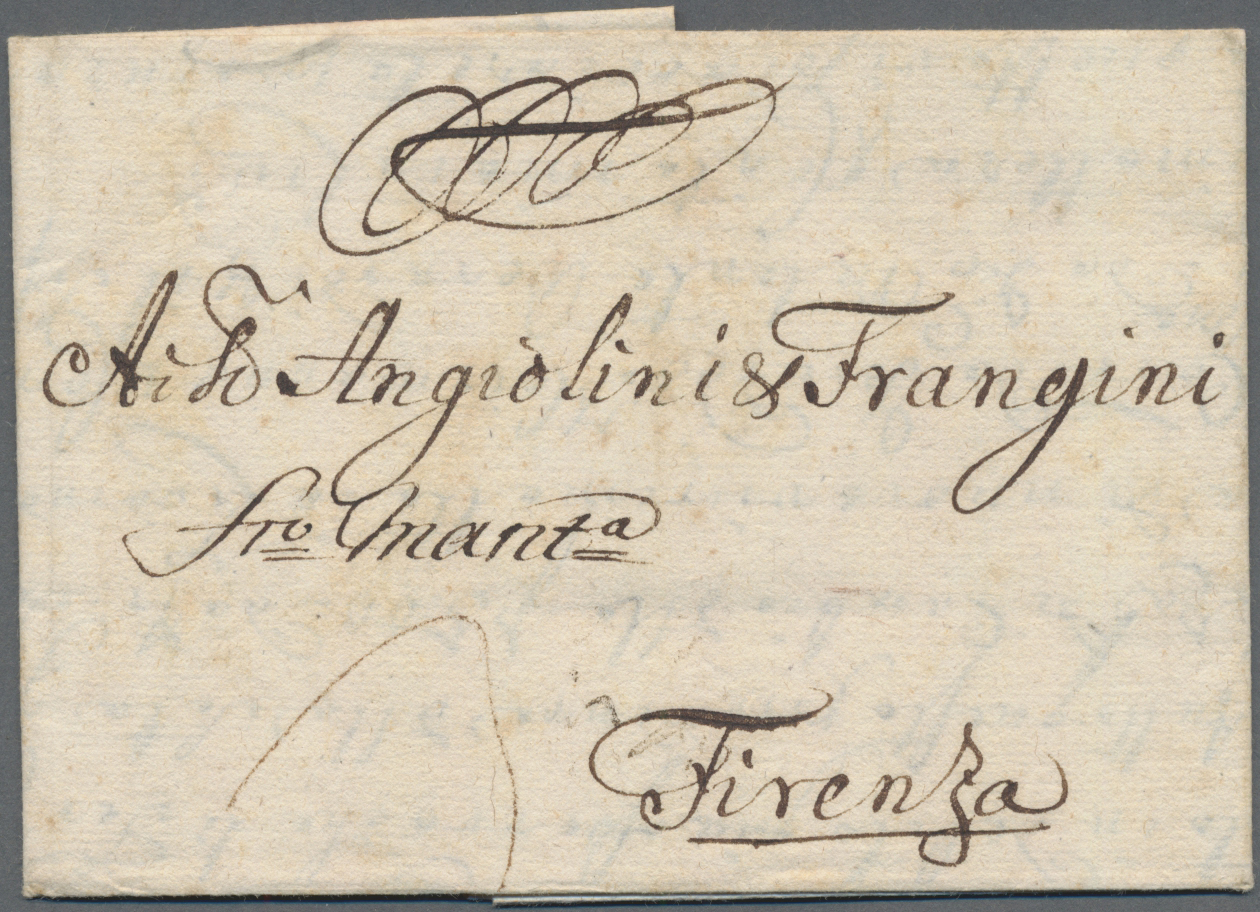 Ai Angiolini & Frangini
fro Manta
Firenza